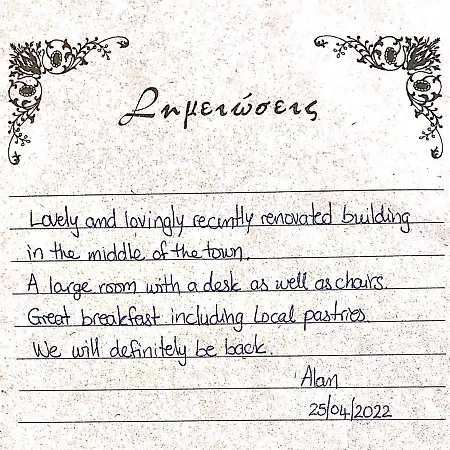 Σημειώσεις
Lovely and lovingly recently renovated building
in the middle of the town.
A large room with a desk as well as chairs.
Great breakfast including local pastries.
We will definitely be back.
Alan
25/04/2022